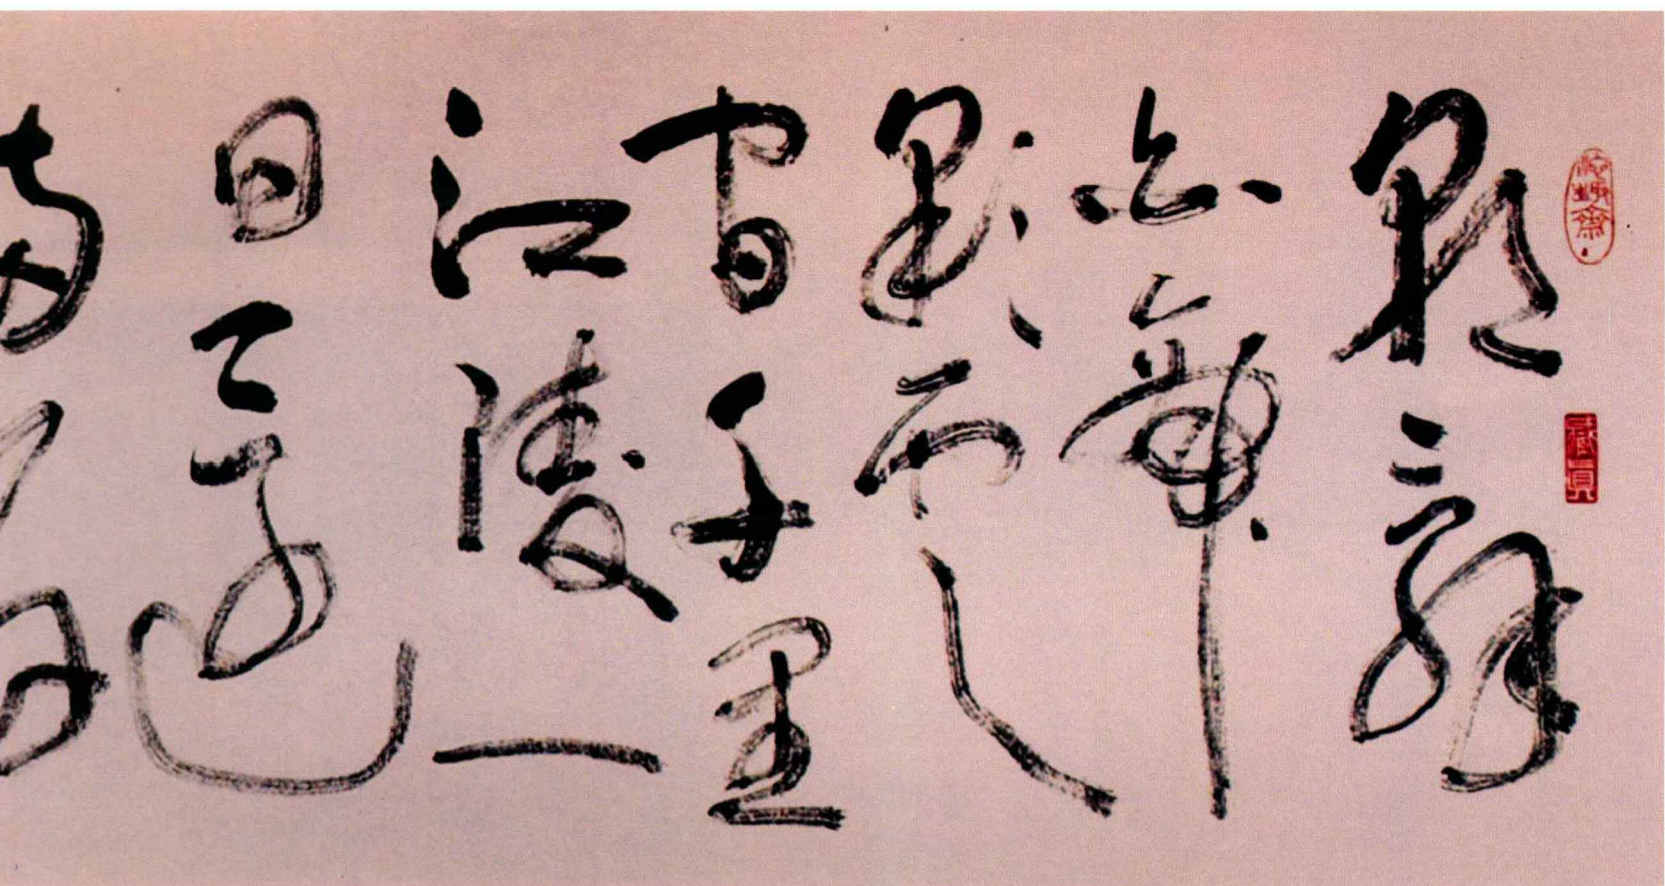 朝辭
白帝
彩雲
間千里
江陵一
日還
藏真